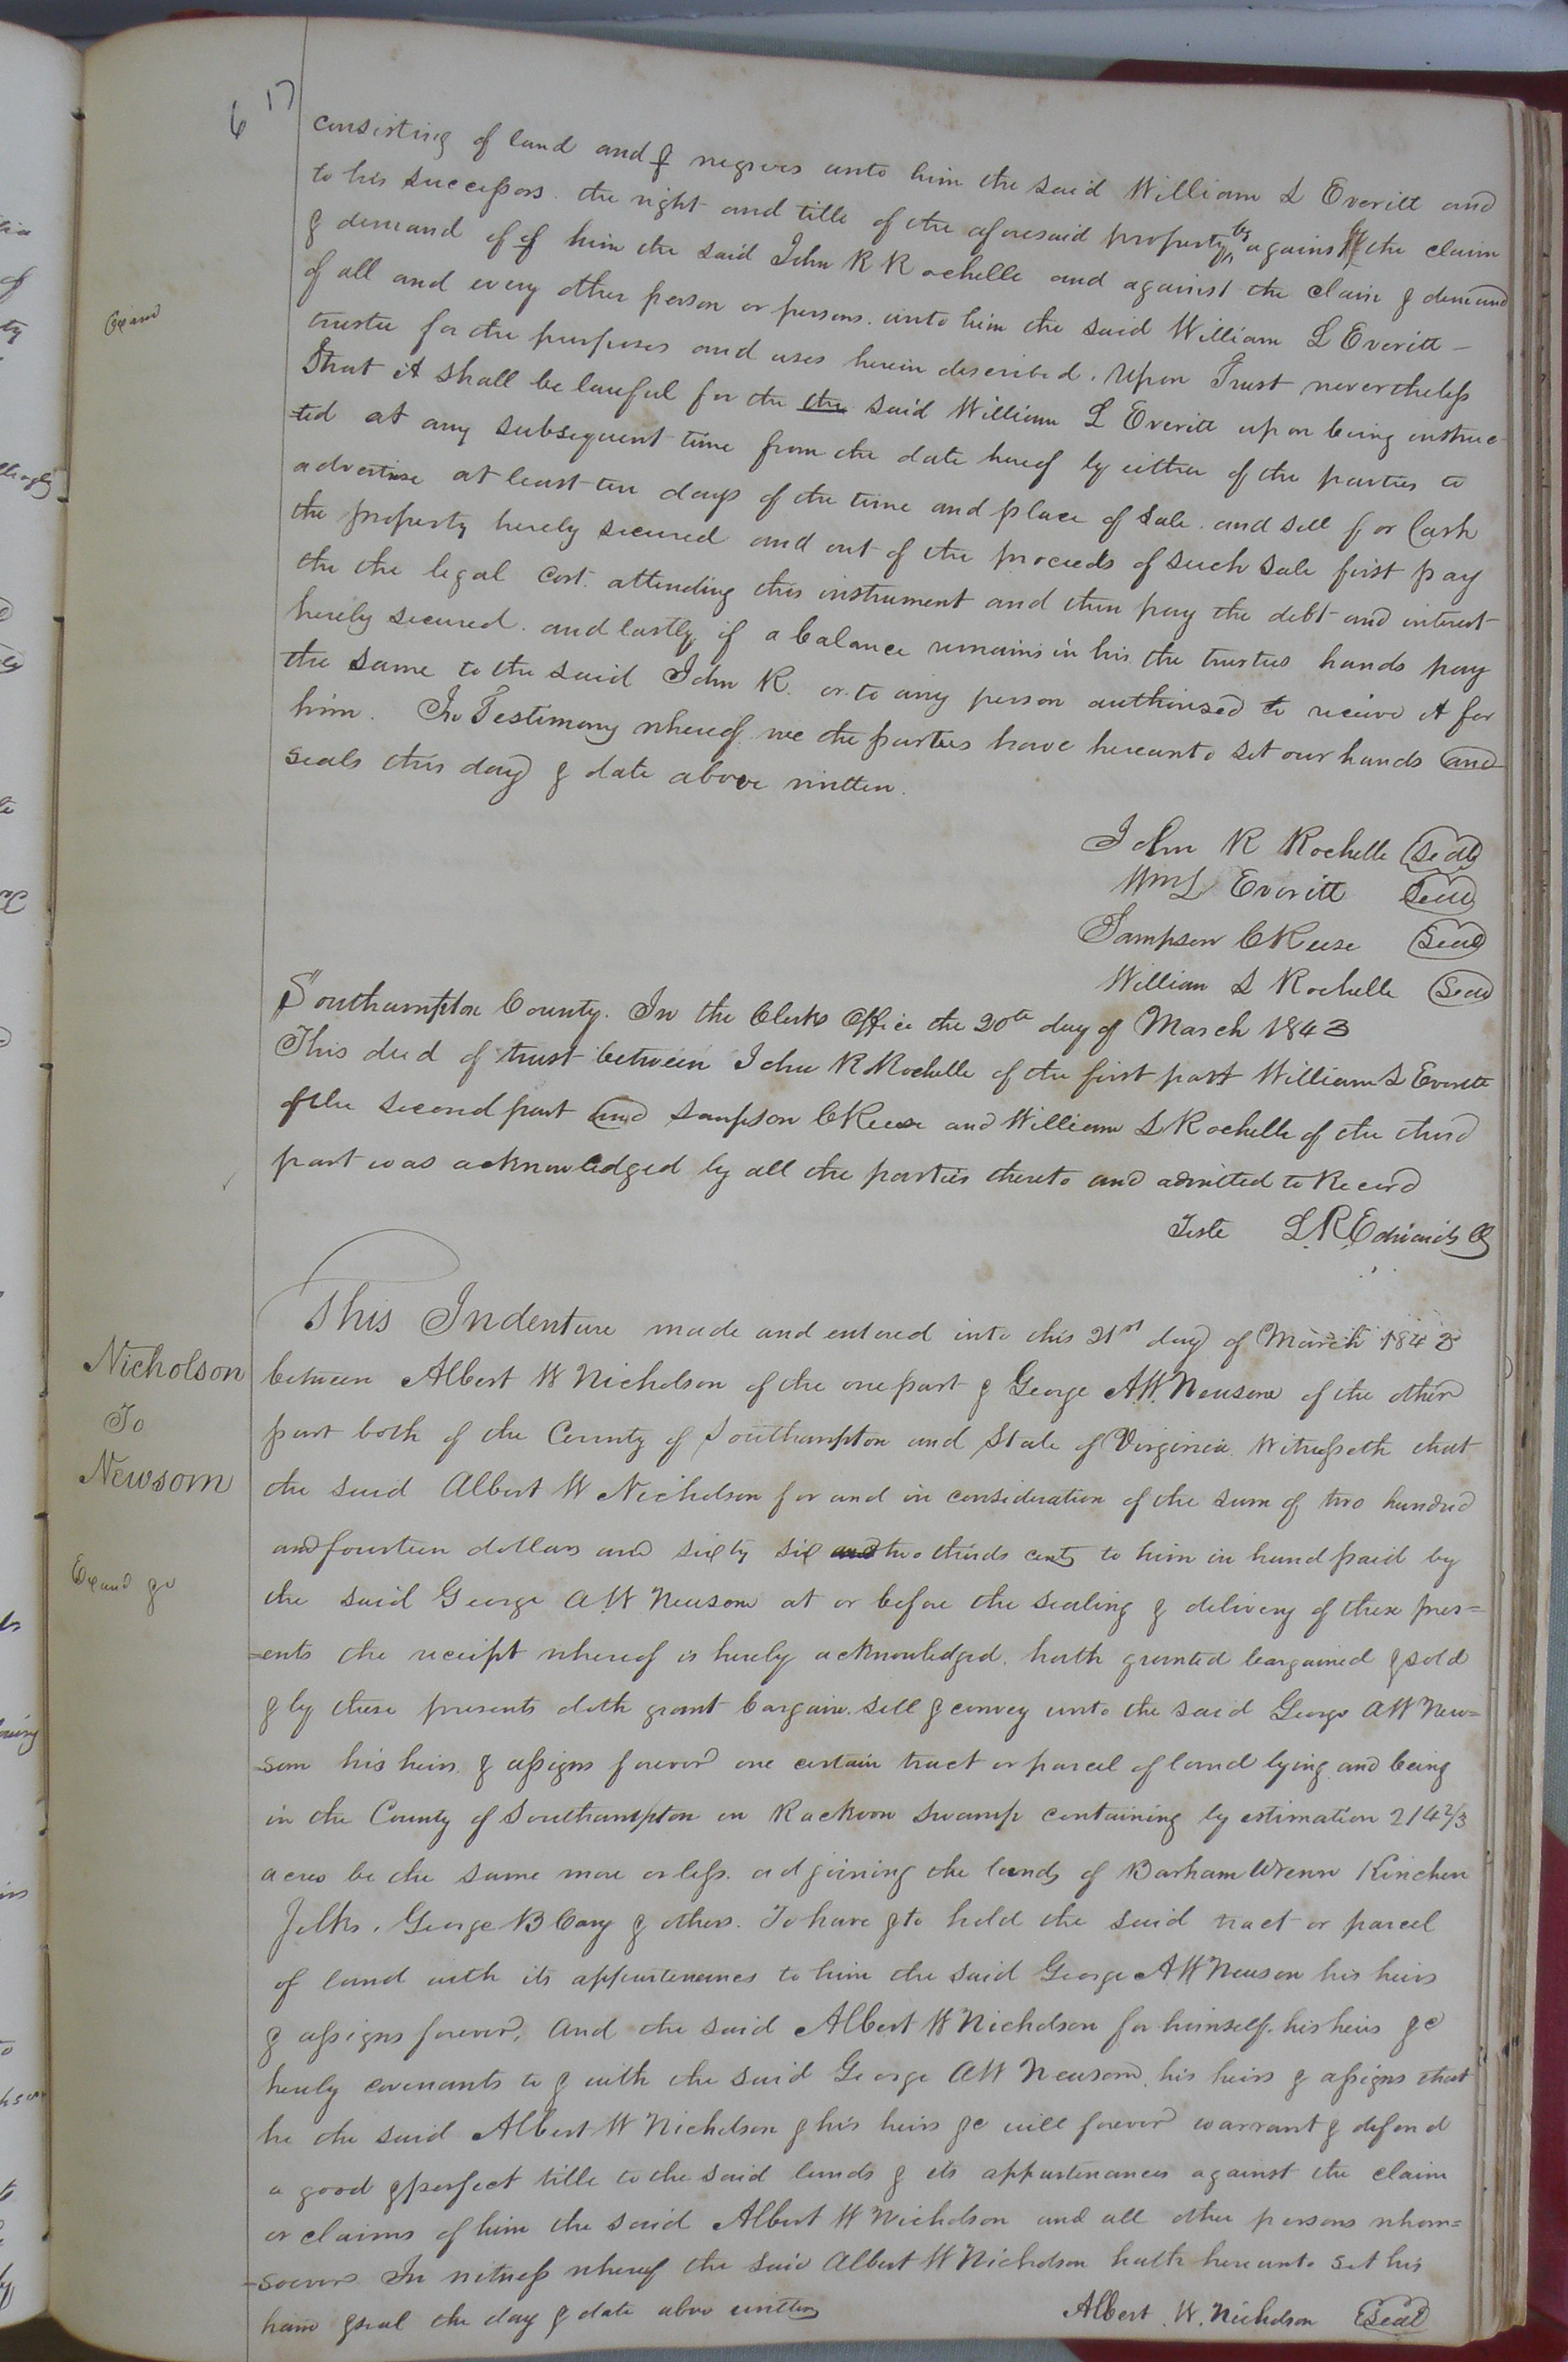 6 17
consisting of land and & negroes unto him the said William L Everitt and
to his successors. the right and title of the aforesaid property by against the claim
& demand of of him the said John R Rochelle and against the claim & demand
of all and every other person or persons. unto him the said William L Everitt –
trustee for the purposes and uses herein described. Upon Trust nevertheless
that it shall be lawful for the the said William L Everitt upon being instruc-
-ted at any subsequent time from the date hereof by either of the parties to
advertise at least ten days of the time and place of sale. and sell for Cash
the property hereby secured and out of the proceeds of such sale first pay
the the legal cost. attending this instrument and then pay the debt and interest
hereby secured. and lastly if a balance remains in his the trustees hands pay
the same to the said John R. or to any person authorised to receive it for
him. In Testimony whereof we the parties have hereunto set our hands and
seals this day & date above written.
John R Rochelle Seal
Wm L Everitt Seal
Sampson C Reese Seal
William L Rochelle Seal
Southampton County. In the Clerks Office the 20th day of March 1843
This deed of trust between John R Rochelle of the first part William L Everitt
of the second part and Sampson C Reese and William L Rochelle of the third
part was acknowledged by all the parties thereto and admitted to Record
Teste L. R. Edwards Cl
Exand
This Indenture made and entered into this 21st day of March 1843
between Albert W Nicholson of the one part & George A.W. Newsom of the other
part both of the County of Southampton and State of Virginia. Witnesseth that
the said Albert W Nicholson for and in consideration of the sum of two hundred
and fourteen dollars and sixty six and two thirds cents to him in hand paid by
the said George A.W Newsom at or before the sealing & delivery of these pres=
=ents the receipt whereof is hereby acknowledged. hath granted bargained & sold
& by these presents doth grant bargain. sell & convey unto the said George A W New=
=som his heirs & assigns forever one certain tract or parcel of land lying and being
in the County of Southampton on Rackoon Swamp containing by estimation 214 2/3
acres be the same more or less. adjoining the lands of Barham Wrenn Kinchen
Jelks. George B Cary & others. To have & to hold the said tract or parcel
of land with its appurtenances to him the said George A W Newsom his heirs
& assigns forever, And the said Albert W Nicholson for himself. his heirs &c
hereby covenants to & with the said George A W Newsom, his heirs & assigns that
he the said Albert W Nicholson & his heirs &c will forever warrant & defend
a good & perfect title to the said lands & its appurtenances against the claim
or claims of him the said Albert W Nicholson and all other persons whom=
=soever. In witness whereof the said Albert W Nicholson hath hereunto set his
hand & seal the day & date above written
Albert. W. Nicholson Seal
Nicholson
To
Newsom
Exand